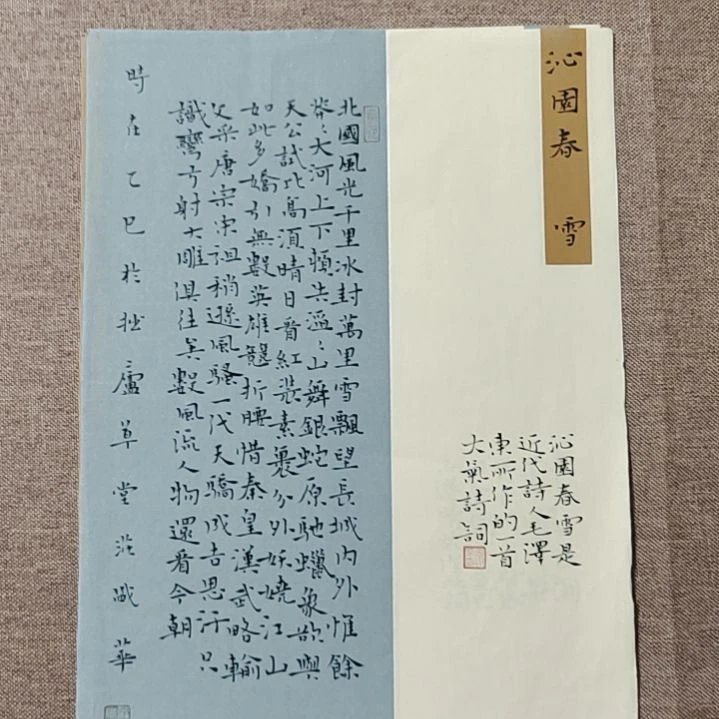 沁園春 雪
沁園春雪是
近代詩人毛澤
東所作的一首
大氣詩詞
北國風光千里冰封萬里雪飄望長城內外惟餘
莽〻大河上下頓失滔〻山舞銀蛇原馳蠟象欲與
天公試比高須晴日看紅裝素裹分外妖嬈江山
如此多嬌引無數英雄競折腰惜秦皇漢武略輸
文采唐宗宋祖稍遜風騷一代天驕成吉思汗只
識彎弓射大雕俱往矣數風流人物還看今朝
時在乙巳於拙廬草堂華